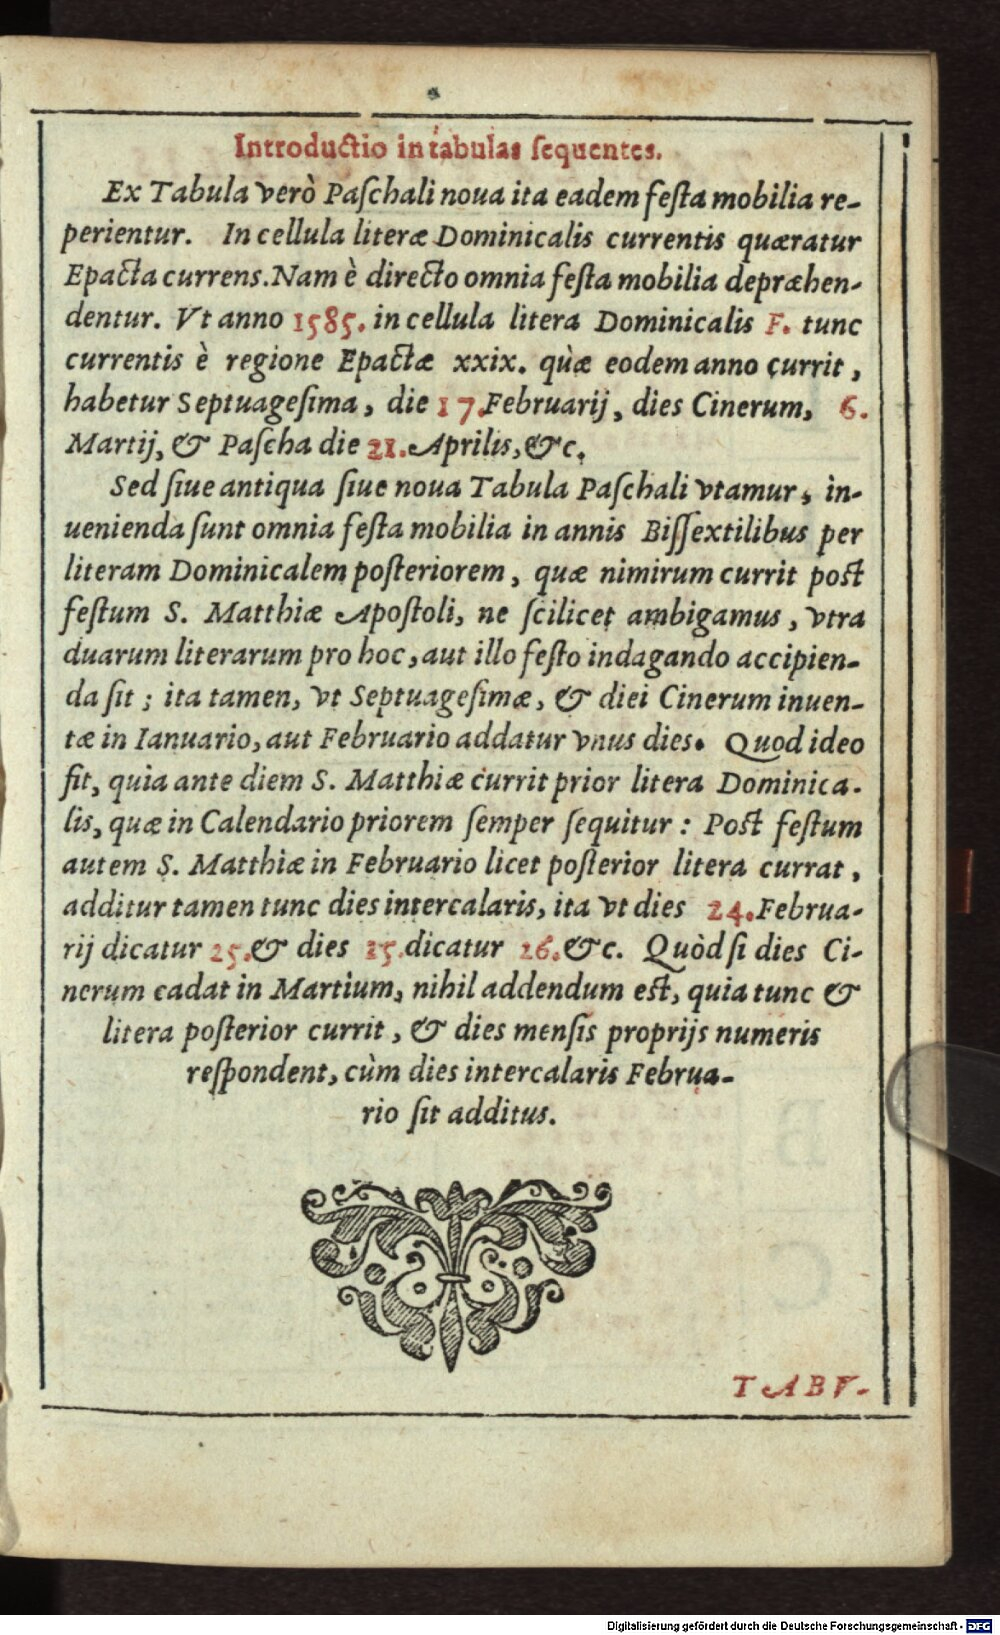 Introductio in tabulas ſequentes.
Ex Tabula verò Paſchali noua ita eadem feſta mobilia re-
perientur. In cellula literæ Dominicalis currentis quæratur
Epacta currens. Nam è directo omnia feſta mobilia depræhen-
dentur. Vt anno 1585. in cellula litera Dominicalis F. tunc
currentis è regione Epactæ xxix. quæ eodem anno currit,
habetur Septuageſima, die 17. Februarij, dies Cinerum, 6.
Martij, & Paſcha die 21. Aprilis, &c.
Sed ſiue antiqua ſiue noua Tabula Paſchali vtamur, in-
uenienda ſunt omnia feſta mobilia in annis Biſſextilibus per
literam Dominicalem poſteriorem, quæ nimirum currit poſt
feſtum S. Matthiæ Apoſtoli, ne ſcilicet ambigamus, vtra
duarum literarum pro hoc, aut illo feſto indagando accipien-
da ſit; ita tamen, vt Septuageſimæ, & diei Cinerum inuen-
tæ in Ianuario, aut Februario addatur vnus dies. Quod ideo
fit, quia ante diem S. Matthiæ currit prior litera Dominica-
lis, quæ in Calendario priorem ſemper ſequitur: Poſt feſtum
autem S. Matthiæ in Februario licet poſterior litera currat,
additur tamen tunc dies intercalaris, ita vt dies 24. Februa-
rij dicatur 25. & dies 25. dicatur 26. &c. Quòd ſi dies Ci-
nerum cadat in Martium, nihil addendum eſt, quia tunc &
litera poſterior currit, & dies menſis proprijs numeris
reſpondent, cùm dies intercalaris Februa-
rio ſit additus.
TABV-
Digitalisierung gefördert durch die Deutsche Forschungsgemeinschaft - DFG